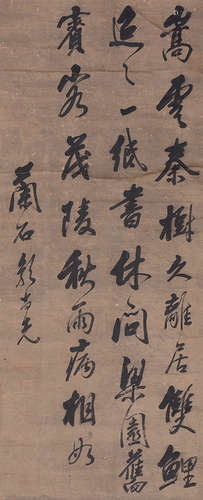 嵩雲秦樹久離居雙鯉
迢迢一紙書休問梁園舊
賓客茂陵秋雨病相如
蘭石郭尚先